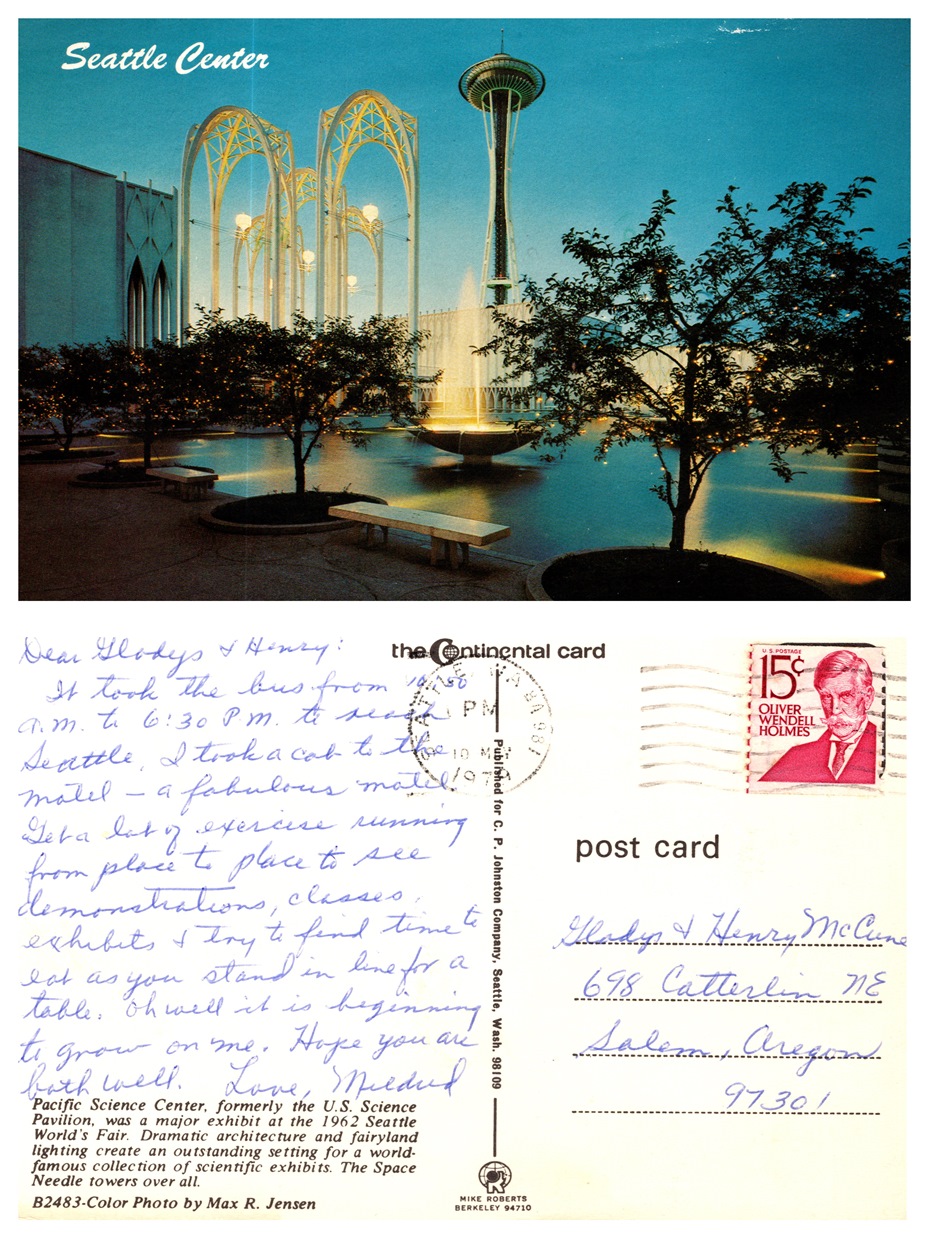 Seattle Center
Dear Gladys & Henry:
It took the bus from 10:30
a.m. to 6:30 P.M. to reach
Seattle, I took a cab to the
motel – a fabulous motel
Get a lot of exercise running
from place to place to see
demonstrations, classes,
exhibits & try to find time to
eat as you stand in line for a
table. Oh well it is beginning
to grow on me. Hope you are
both well. Love, Mildred
Pacific Science Center, formerly the U.S. Science
Pavilion, was a major exhibit at the 1962 Seattle
World's Fair. Dramatic architecture and fairyland
lighting create an outstanding setting for a world-
famous collection of scientific exhibits. The Space
Needle towers over all.
B2483-Color Photo by Max R. Jensen
the Continental card
SEATTLE WA 981
PM
10 MAY
Published for C. P. Johnston Company, Seattle, Wash. 98109
MIKE ROBERTS
BERKELEY 94710
U.S. POSTAGE
15¢
OLIVER
WENDELL
HOLMES
post card
Gladys & Henry McCune
698 Catterlin NE
Salem, Oregon
97301